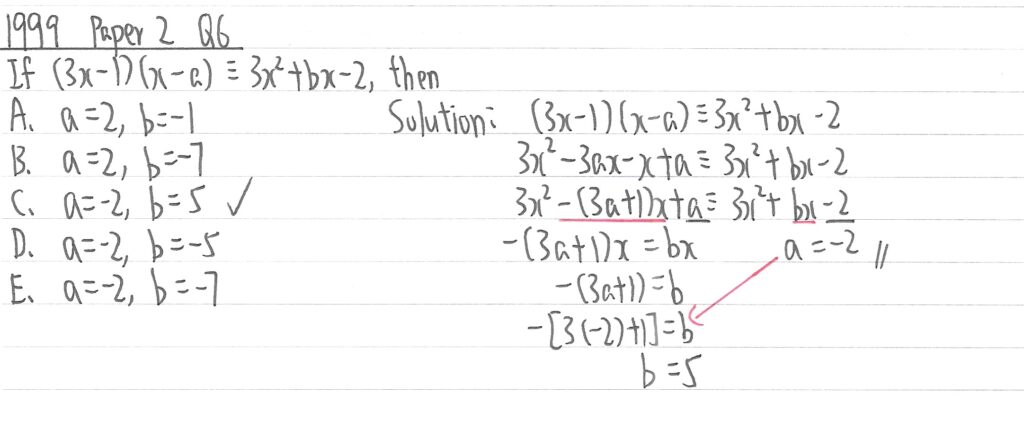 1999 Paper 2 Q6
If (3x-1)(x-a) ≡ 3x²+bx-2, then
A. a=2, b=-1
B. a=2, b=-7
C. a=-2, b=5 ✓
D. a=-2, b=-5
E. a=-2, b=-7
Solution: (3x-1)(x-a)≡3x²+bx-2
3x²-3ax-x+a≡3x²+bx-2
3x²-(3a+1)x+a≡3x²+bx-2
-(3a+1)x=bx a=-2 //
-(3a+1)=b
-[3(-2)+1]=b
b=5